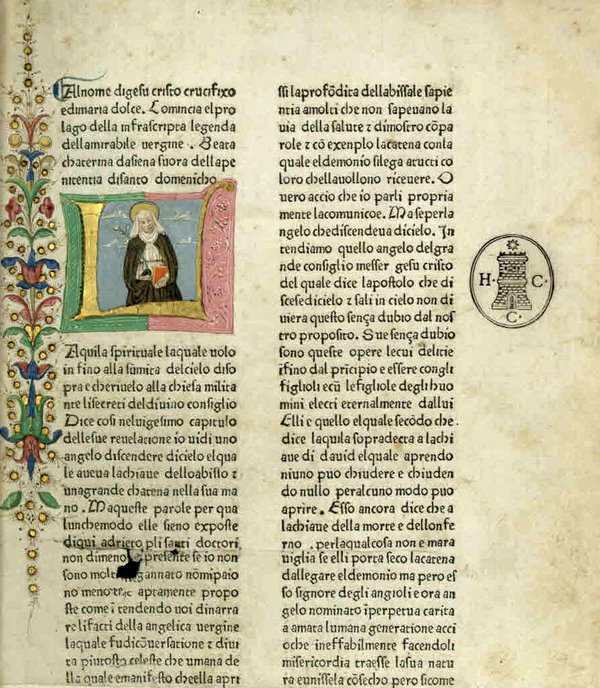 Al nome di gesu cristo crucifixo
e di maria dolce. Comincia el pro
lago della infrascripta legenda
della mirabile uergine . Beata
chaterina da siena suora della pe
nitentia di santo domenicho
L
Aquila spirituale la quale uolo
in fino alla sũmita del cielo diso
pra e che riuelo alla chiesa milita
nte li secreti del diuino consiglio
Dice cosi nel uigesimo capitulo
delle sue reuelatione io uidi uno
angelo discendere di cielo el qua
le aueua la chiaue dello abisso ꝛ
una grande chatena nella sua ma
no . Ma queste parole per qua
lunche modo elle sieno exposte
di qui adrieto p li santi doctori
non dimeno presente se io non
sono molto gannato no mi paio
no meno aptamente propo
ste come i tendendo uoi dinarra
re li facti della angelica uergine
la quale fu di cõuersatione ꝛ di ui
ta piutosto celeste che umana de
lla quale e manifesto che ella apri
ssi la profõdita della bissale sapie
ntia a molti che non sapeuano la
uia della salute ꝛ dimostro cõ pa
role ꝛ cõ exenplo la catena con la
quale el demonio si lega a tucti co
loro che lla uollono riceuere. O
uero accio che io parli propria
mente la comunicoe. Ma se per la
ngelo che discendeua di cielo. In
tendiamo quello angelo del gra
nde consiglio messer gesu cristo
del quale dice lapostolo che di
scese di cielo ꝛ sali in cielo non di
uiera questo sença dubio dal nos
tro proposito. Sue sença dubio
sono queste opere le cui delitie
ifino dal principio e essere con gli
figlioli e cũ le figliole degli huo
mini electi eternalmente da llui
Elli e quello el quale secõdo che .
dice laquila sopradecta a la chi
aue di dauid el quale aprendo
niuno puo chiudere e chiuden
do nullo per alcuno modo puo
aprire. Esso ancora dice che a
la chiaue della morte e dellonfe
rno . per la qual cosa non e mara
uiglia se elli porta seco la catena
da llegare el demonio ma pero es
so signore degli angioli e ora an
gelo nominato ĩ perpetua carita
a amata lumana generatione acci
oche ineffabilmente facendoli
misericordia traesse la sua natu
ra e unissela cõsecho pero si come
H · C ·
C ·